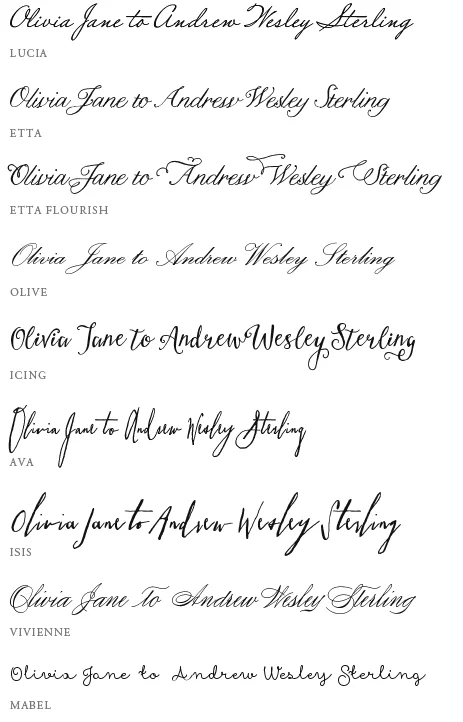 Olivia Jane to Andrew Wesley Sterling
LUCIA
Olivia Jane to Andrew Wesley Sterling
ETTA
Olivia Jane to Andrew Wesley Sterling
ETTA FLOURISH
Olivia Jane to Andrew Wesley Sterling
OLIVE
Olivia Jane to Andrew Wesley Sterling
ICING
Olivia Jane to Andrew Wesley Sterling
AVA
Olivia Jane to Andrew Wesley Sterling
ISIS
Olivia Jane To Andrew Wesley Sterling
VIVIENNE
Olivia Jane to Andrew Wesley Sterling
MABEL